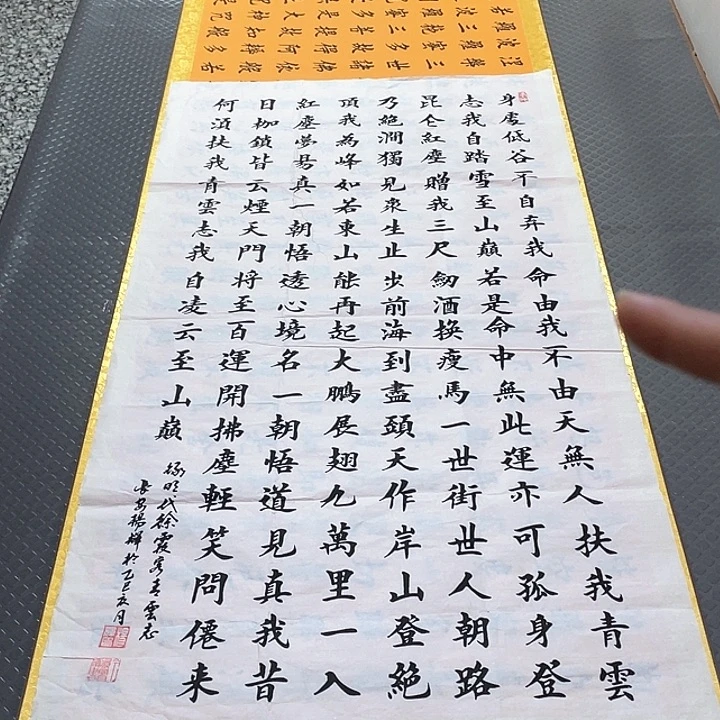 身處低谷不自弃我命由我不由天無人扶我青雲
志我自踏雪至山巔若是命中無此運亦可孤身登
昆仑紅塵贈我三尺劒酒換瘦馬一世街世人朝路
乃絕澗獨見衆生止步前海到盡頭天作岸山登絕
頂我為峰如若東山能再起大鵬展翅九萬里一入
紅塵夢易真一朝悟透心境名一朝悟道見真我昔
日枷鎖皆云煙天門將至百運開拂塵輕笑問僊来
何須扶我青雲志我自凌云至山巔
録明代徐霞客青雲志
长安楊輝於乙巳夏月